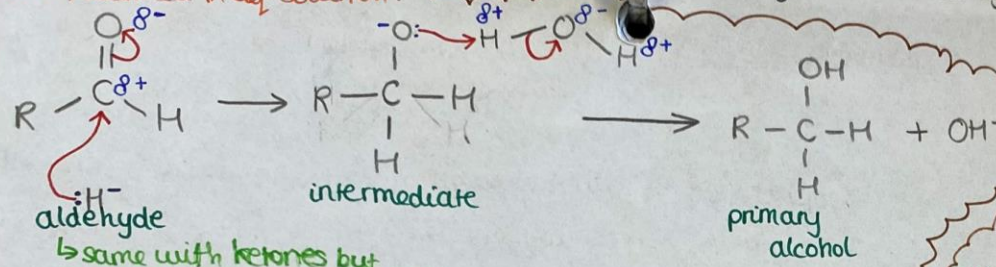 O δ-
‖
C δ+
R H
:H⁻
aldehyde
↳ same with ketones but
⁻O: δ+ H — O δ- H δ+
R — C — H
H
intermediate
OH
R — C — H + OH⁻
H
primary
alcohol